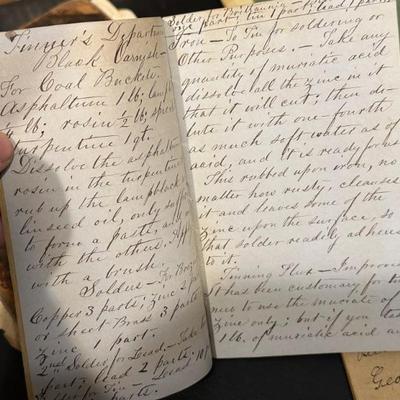 Tinner's Department
Black Varnish—
For Coal Buckets.
Asphaltum 1 lb; lamp
¼ lb; rosin ½ lb; spirits
turpentine 1 qt.
Dissolve the asphaltum
rosin in the turpentine
rub up the lampblack
linseed oil, only suf
to form a paste, and
with the others. App
with a brush.
Solders—For
Copper 3 parts; zinc 2 p
or sheet Brass 3 parts
zinc 1 part.
2nd Solder for Lead—Take
1 part; lead 2 parts.
Tin—Lead 10
parts.
Solder for Britannia
1 part; lead 1 part
Iron—To Tin for soldering or
Other Purposes.—Take any
quantity of muriatic acid
dissolve all the zinc in it
that it will cut; then di-
lute it with one-fourth
as much soft water as of
acid, and it is ready for us
This rubbed upon iron, no
matter how rusty, cleanses
it and leaves some of the
zinc upon the surface, so
that solder readily adheres
to it.
Tinning Flux—Improved
It has been customary for tin
ners to use the muriate of
zinc only; but if you take
1 lb. of muriatic acid an
Geo